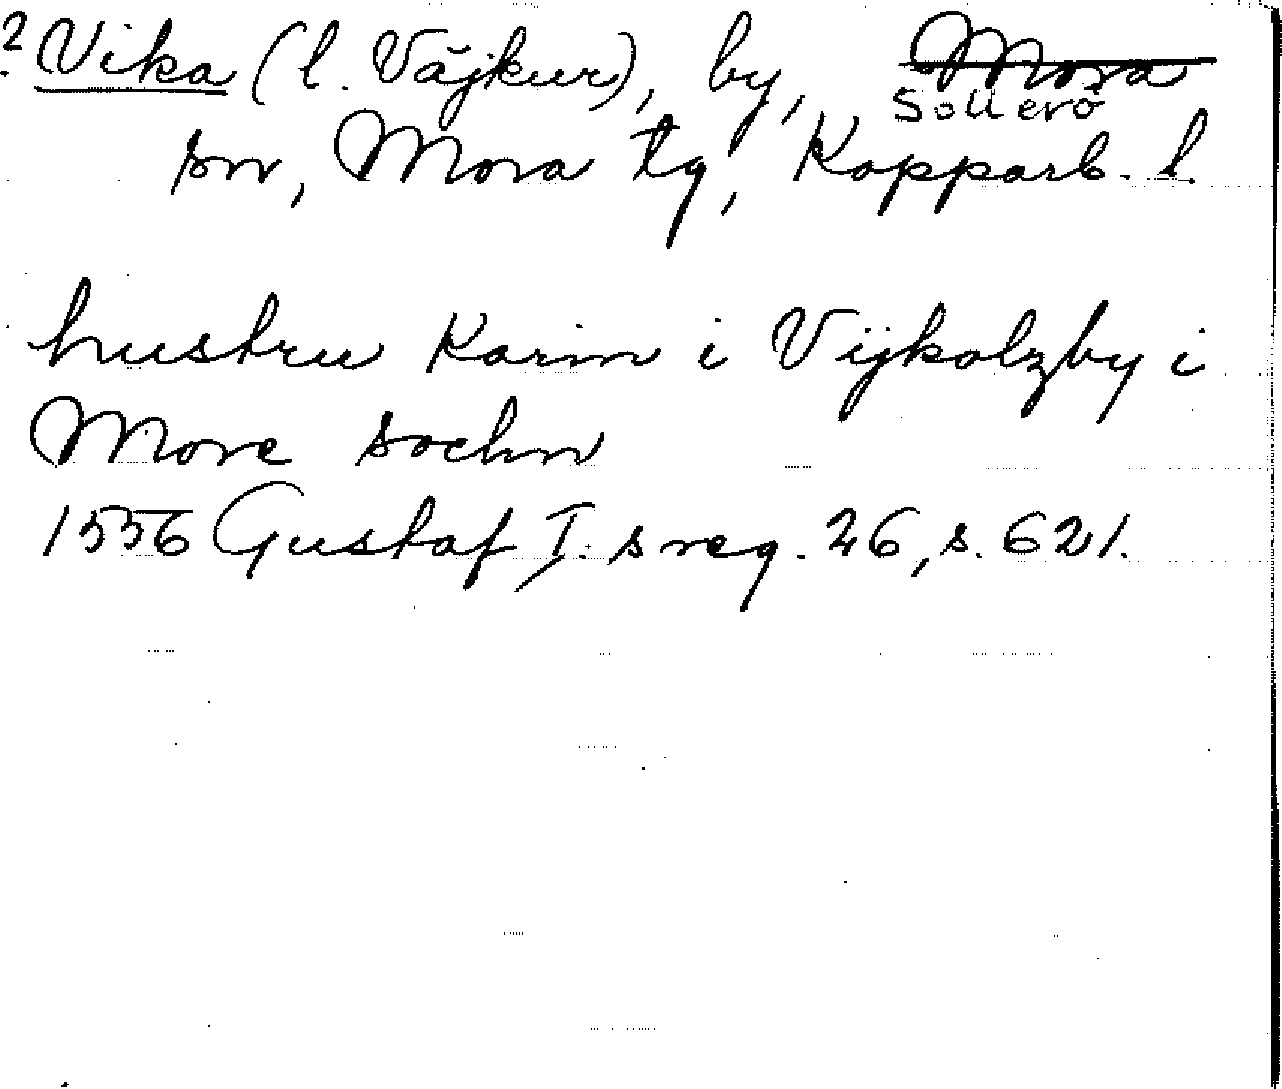 ? Vika (l.Väjkur), by, Mora
Sollerö
sn, Mora tg, Kopparb. l.
hustru Karin i Vijkolzby i
More sochn
1556 Gustaf I:s reg. 26, s. 621.